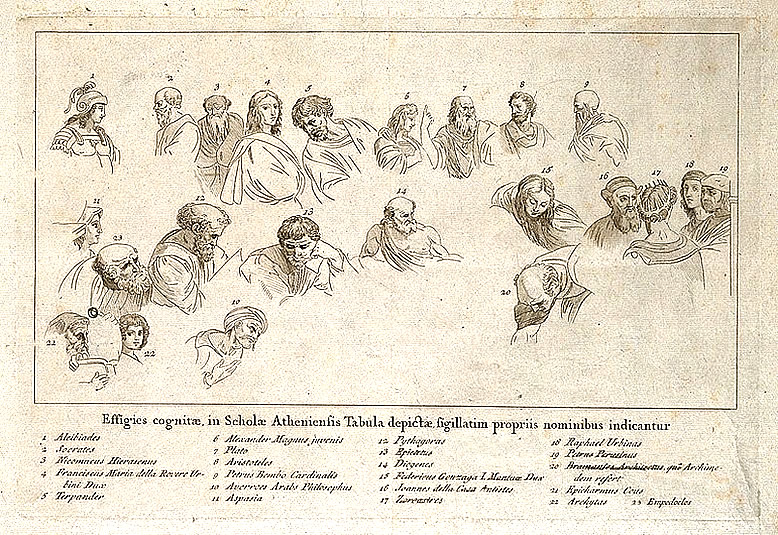 1
2
3
4
5
6
7
8
9
11
23
12
13
14
15
16
17
18
19
20
21
22
10
Effigies cognitæ, in Scholæ Atheniensis Tabula depictæ, sigillatim propriis nominibus indicantur
1 Alcibiades
2 Socrates
3 Nicomacus Hierasenus
4 Franciscus Maria della Rovere Ur-
bini Dux
5 Terpander
6 Alexander Magnus juvenis
7 Plato
8 Aristoteles
9 Petrus Bembo Cardinalis
10 Averroes Arabs Philosophus
11 Aspasia
12 Pythagoras
13 Epictetus
14 Diogenes
15 Federicus Gonzaga I. Mantuæ Dux
16 Joannes della Casa Antistes
17 Zoroastres
18 Raphael Urbinas
19 Petrus Perusinus
20 Bramantes Architectus, qui Archime-
dem refert
21 Epicharmus Cous
22 Archytas 23 Empedocles